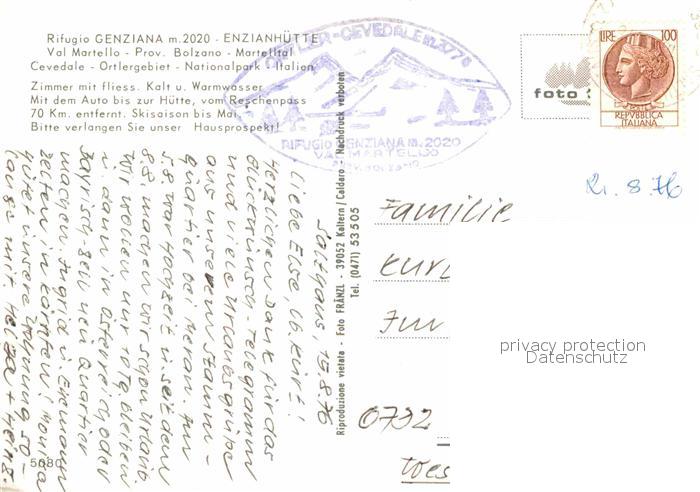 Rifugio GENZIANA m.2020 - ENZIANHÜTTE
Val Martello - Prov. Bolzano - Martelltal
Cevedale - Ortlergebiet - Nationalpark - Italien
Zimmer mit fliess. Kalt u. Warmwasser
Mit dem Auto bis zur Hütte, vom Reschenpass
70 Km. entfernt. Skisaison bis Mai
Bitte verlangen Sie unser Hausprospekt!
ORTLER-CEVEDALE m.3774
RIFUGIO GENZIANA m. 2020
VAL MARTELLO
foto
LIRE 100
REPVBBLICA
ITALIANA
21. 8. 76
Salthaus, 15.8.76
Liebe Else, lb. Kurt!
Herzlichen Dank für das
Glückwunsch-Telegramm
und viele Urlaubsgrüße
aus unserem Stamm-
quartier bei Meran. Am
5.8. war Hochzeit u. seit dem
8.8. machen wir schon Urlaub.
Wir wollen nur 10 Tg. bleiben
u. dann in Österreich oder
Bayrisch Zell neu Quartier
machen. Ingrid u. Ehemann
zelten in Kärnten! Monika
hütet unsere Wohnung so-
lange mit
Riproduzione vietata - Foto FRÄNZL - 39052 Kaltern/Caldaro - Nachdruck verboten
Tel. (0471) 53505
Familie
Kurt
0732
Wes
privacy protection
Datenschutz
5080